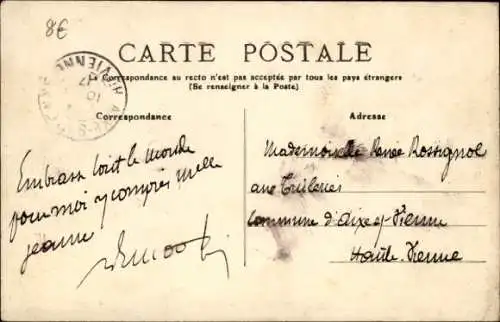 8€
CARTE POSTALE
La Correspondance au recto n'est pas acceptée par tous les pays étrangers
(Se renseigner à la Poste)
Correspondance
Adresse
VIENNE
Embrasse tout le monde
pour moi y compris Melle
jeanne
Mademoiselle Renée Rossignol
aux Tuileries
Commune d'Aixe s/ Vienne
Haute-Vienne